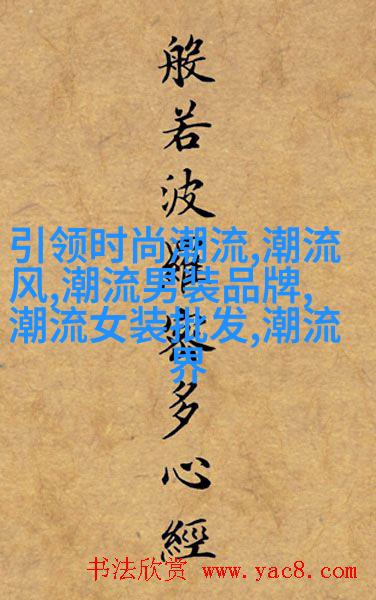 般若波羅蜜多心經
引领时尚潮流,潮流
风,潮流男装品牌,
潮流女装批发,潮流
界
书法欣赏 www.yac8.com